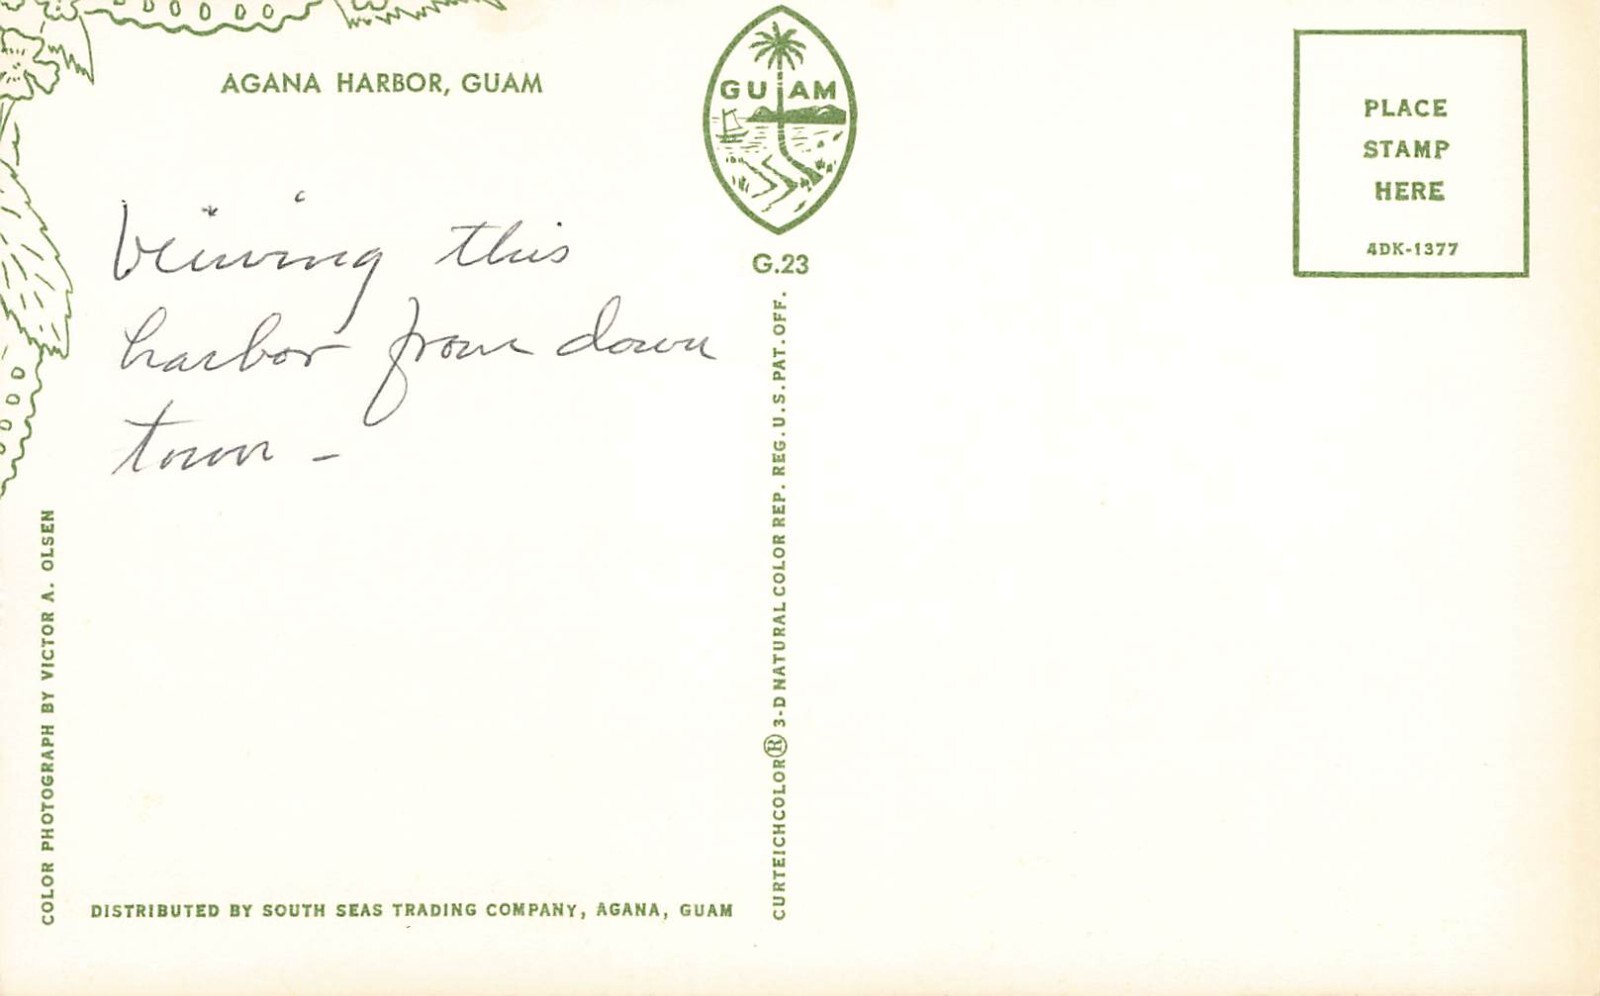 AGANA HARBOR, GUAM
GUAM
G.23
PLACE
STAMP
HERE
4DK-1377
Veiwing this
harbor from down
town -
COLOR PHOTOGRAPH BY VICTOR A. OLSEN
DISTRIBUTED BY SOUTH SEAS TRADING COMPANY, AGANA, GUAM
CURTEICHCOLOR® 3-D NATURAL COLOR REP. REG. U.S. PAT. OFF.